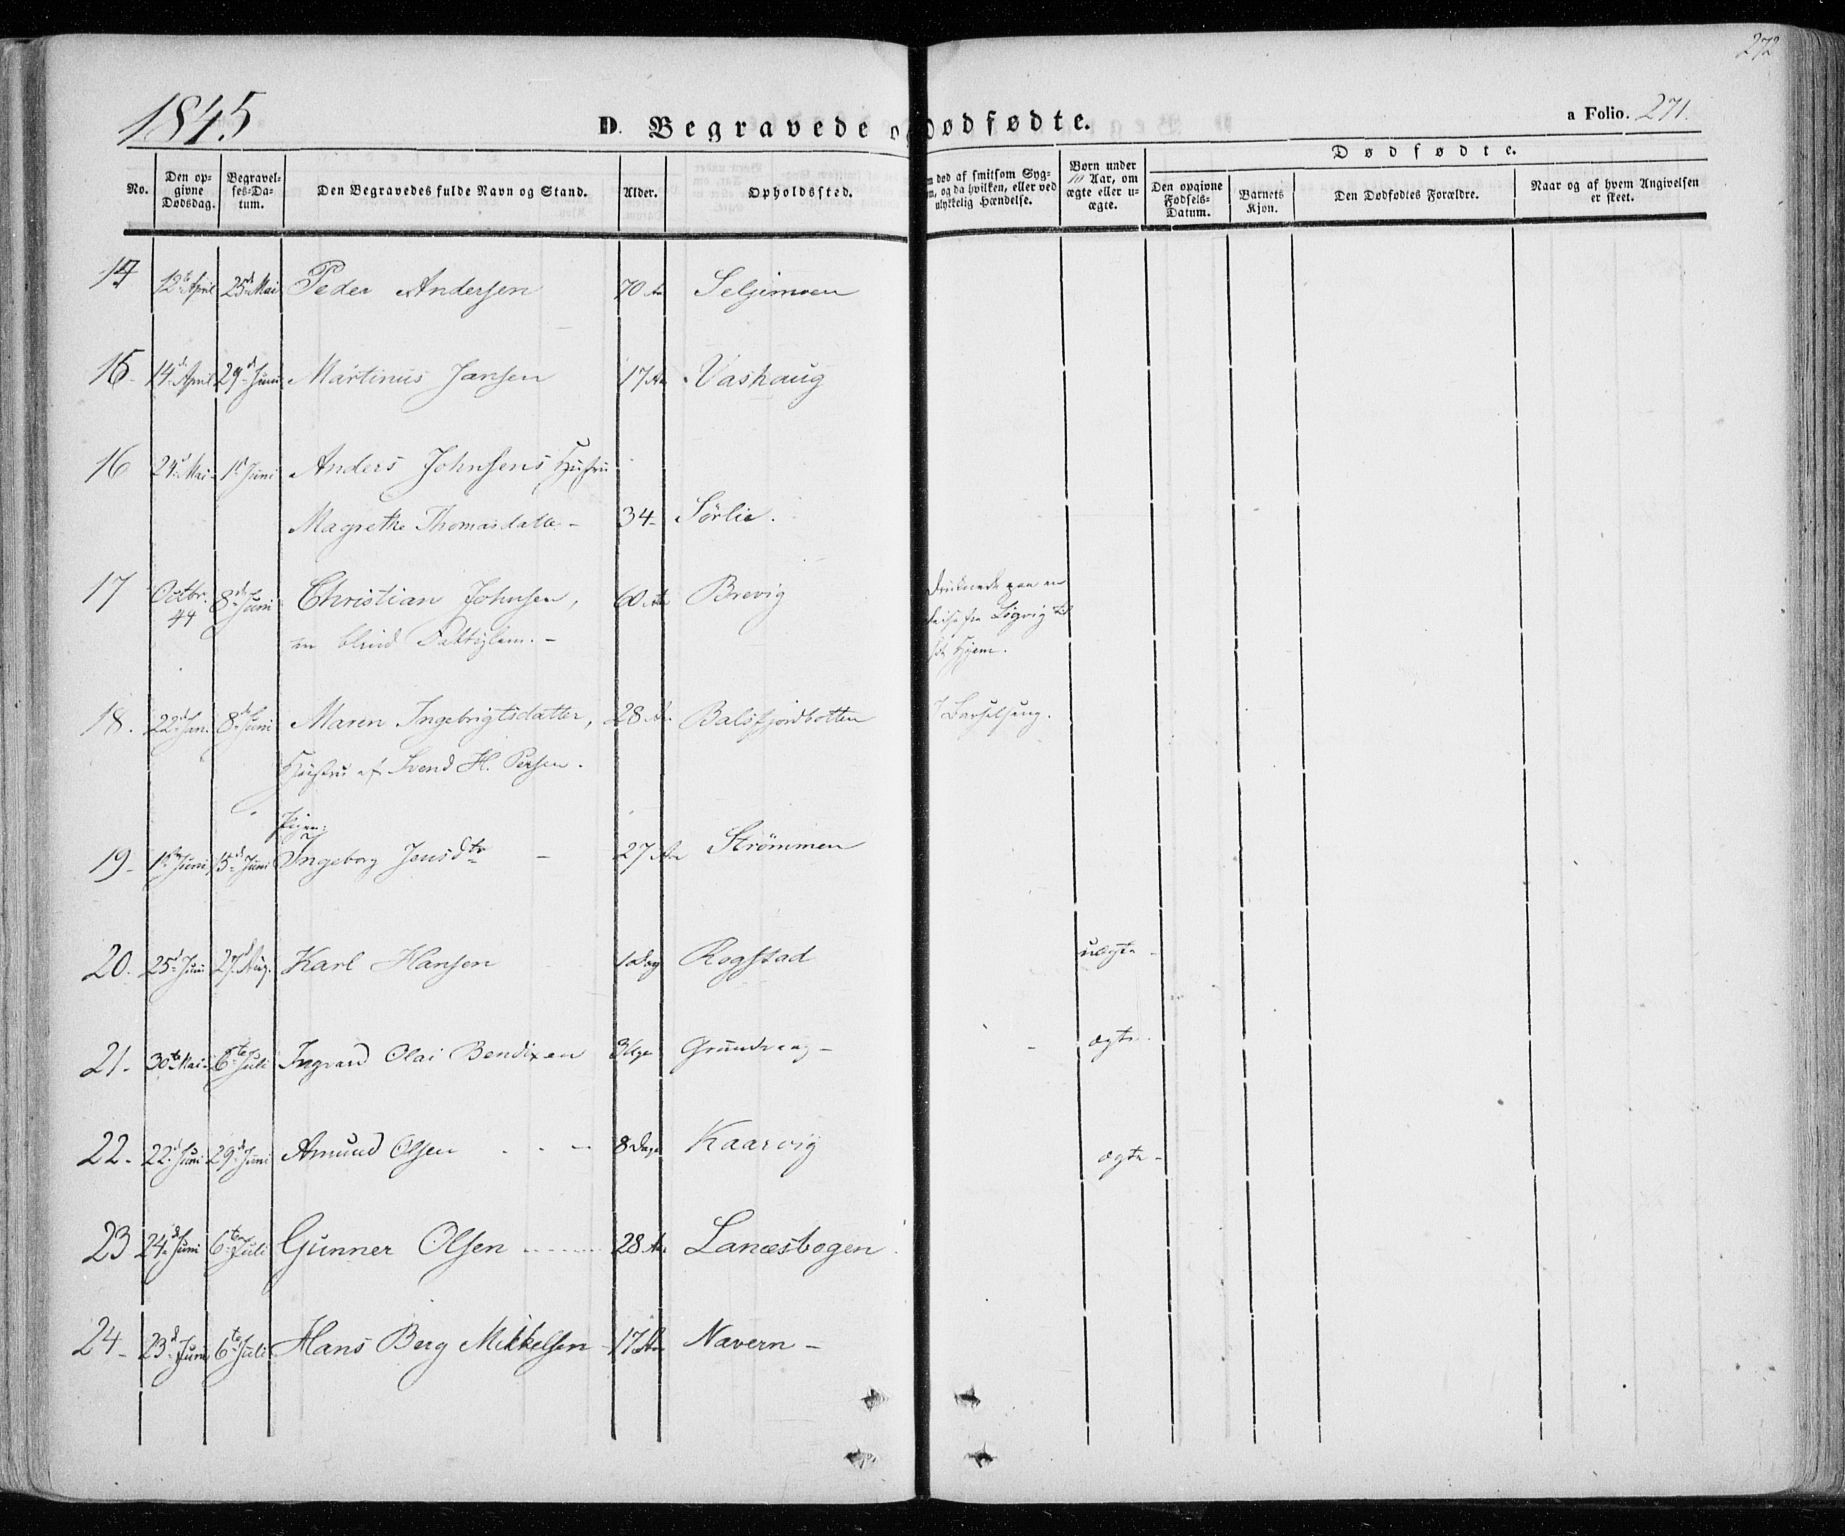 272
1845
D. Begravede o
dødfødte.
a Folio. 271.
No.
Den op-
givne
Dødsdag.
Begravel-
ses-Da-
tum.
Den Begravedes fulde Navn og Stand.
Alder.
Opholdssted.
m død af smitsom Syg-
m, og da hvilken, eller ved
ulykkelig Hændelse.
Børn under
10 Aar, om
ægte eller u-
ægte.
Dødfødte.
Den opgivne
Fødsels-
Datum.
Barnets
Kjøn.
Den Dødfødtes Forældre.
Naar og af hvem Angivelsen
er skeet.
14 12te April 25de Mai Peder Andersen 70 Aar Seljemoen
15 14de April 29de Juni Martinus Jansen 17 Aar Vashaug
16 24de Mai 1ste Juni Anders Johnsens Hustru
Magrethe Thomasdatter - 34 - Sörlie.
17 Octbr. 44 8de Juni Christian Johnsen, 60 Aar Brevig druknede paa en
en blind Fattiglem. - Reise fra Løgvig til
sit Hjem.
18. 22de Jan. 8de Juni Maren Ingebrigtsdatter, 28 Aar Balsfjordbotten I Barselseng.
Hustru af Svend H. Persen.
Pigen
19 - 1ste Juni 15de Juni Ingeborg Jensdtr - 27 Aar Strömmen
20. 25de Juni 27de Aug. Karl Hansen 1 Dag Rogstad uægte -
21. 30te Mai 6te Juli Ingvard Olai Bendixen 3 Uger Grundvaag - ægte.
22. 22de Juni 29de Juni Amund Olsen 8 Dage Kaarvig ægte -
23 24de Juni 6te Juli Gunner Olsen 28 Aar Lanæsbogen.
24 - 23de Juni 6te Juli Hans Berg Mikkelsen - 17 Aar Navern -